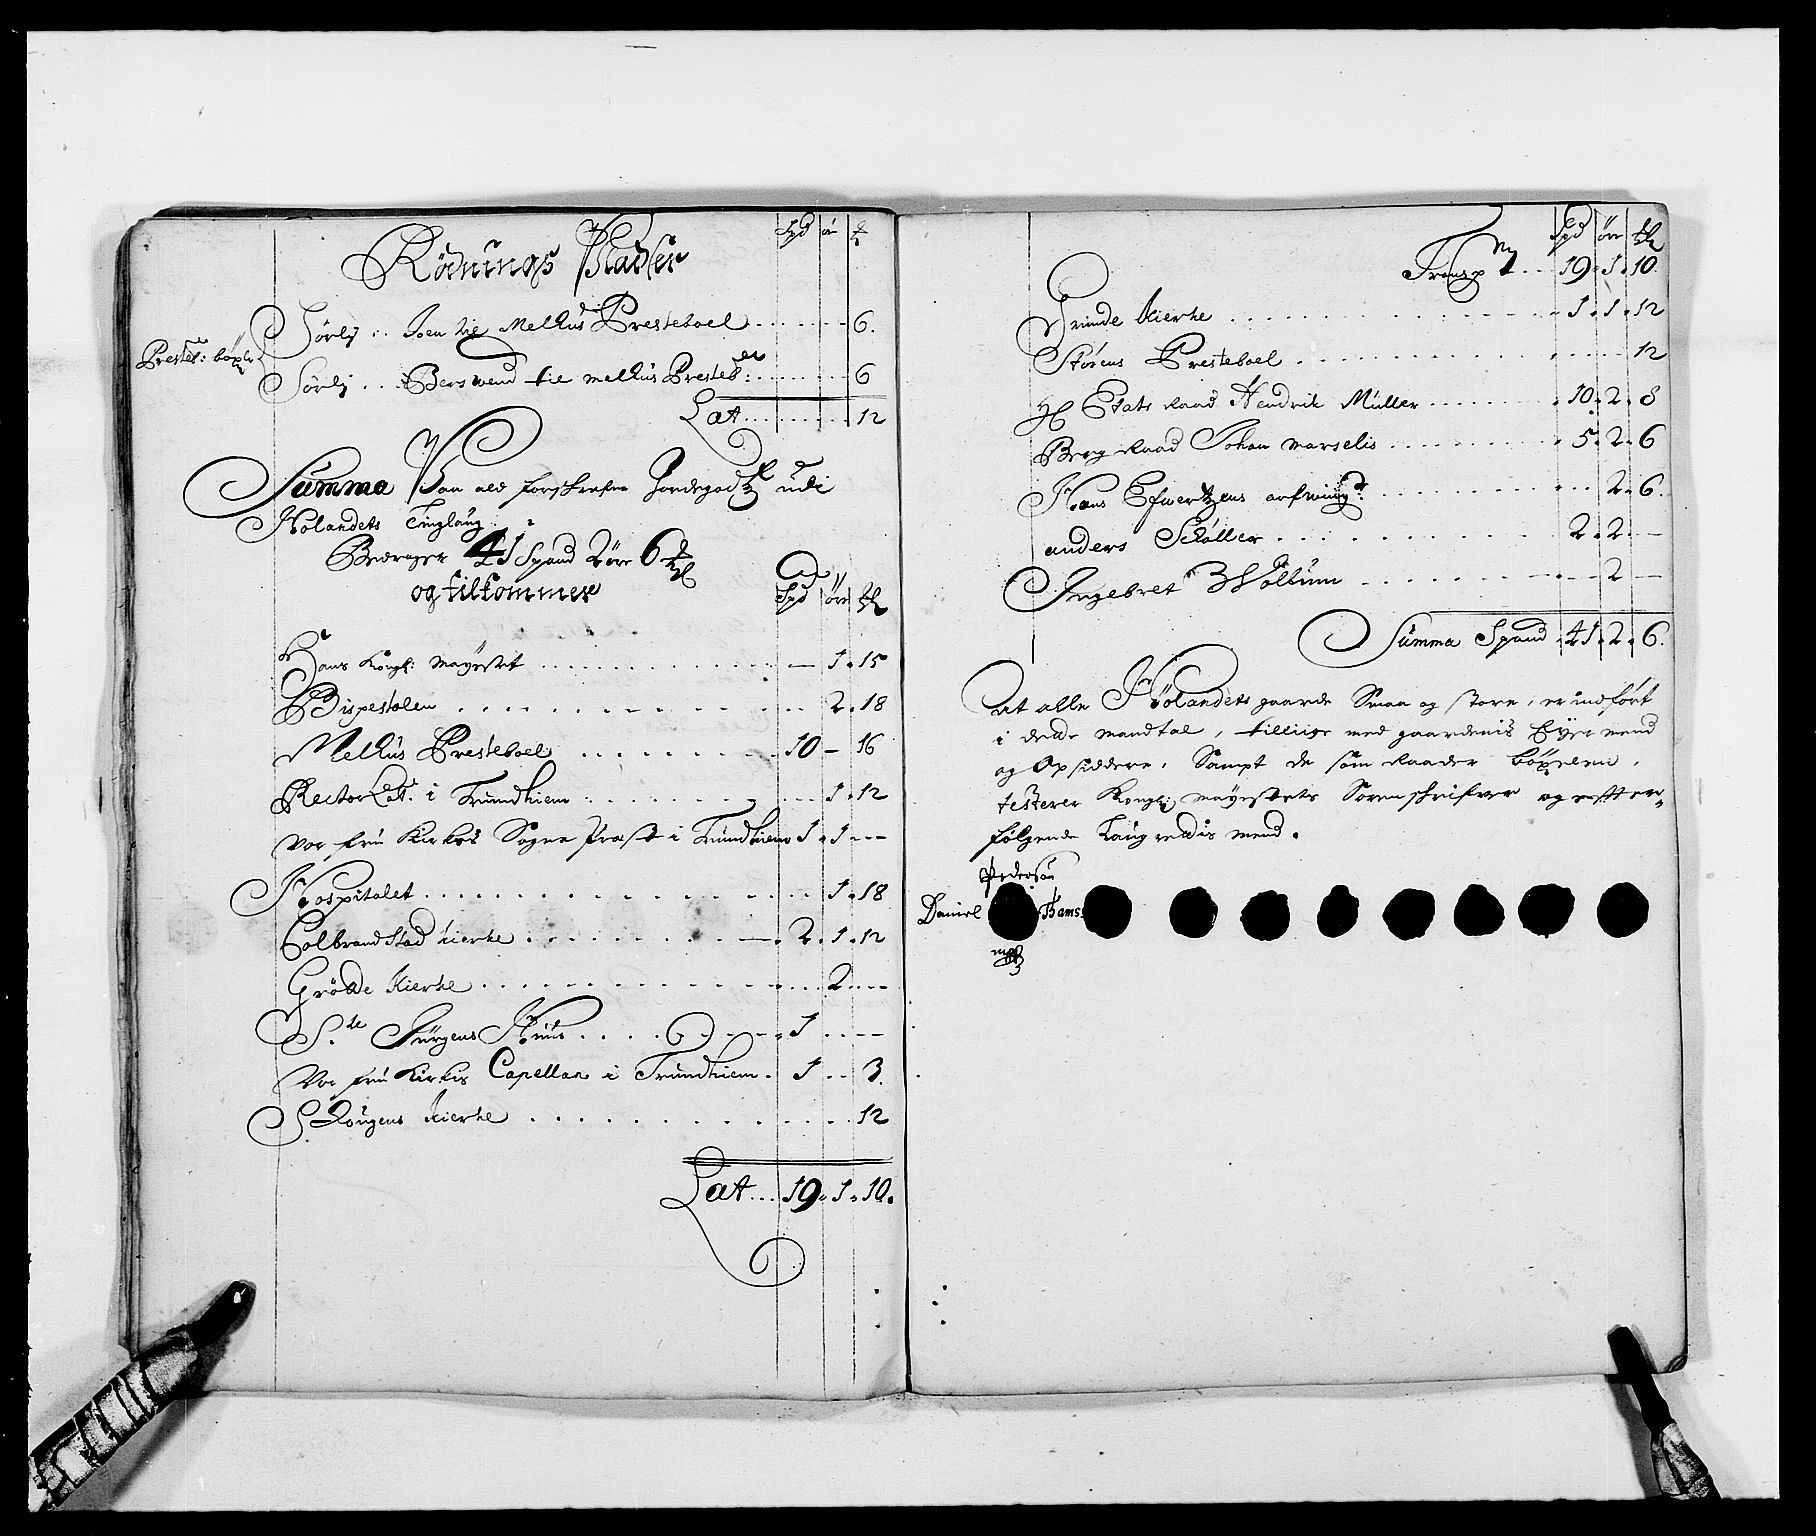 Rödnings Pladser
Spd ör
Sörly .. Joen til Melhus Presteboel ....... 6.
Prestel: böxler
Sörly ... Berswend til melhus Presteb: ....... 6
Lat ....... 12
Summa Paa ald forskrefne Jordegodtz udi
Hølandets Tinglaug.
Bedrager 41 Spand 2 öre 6
og tilkommer
Spd öre
Hans Kongl: Mayestet ....... — 1. 15
Bispestolen ....... 2. 18
Melhus Presteboel ....... 10 — 16
Rector Lat. i Trundhiem ....... 1. 12
Vor frue Kirkes Sogne Præst i Trundhiem 1. 1 --
Hospitalet ....... 1. 18
Colbrandstad kierke ....... 2. 1. 12
Grötte Kierke ....... 2 --
S.te Jürgens Huus ....... 1 ..--
Vor frue Kirkis Capellan i Trundhiem. 1 .. 3.
Schougens kierke ....... 12
Lat ... 19. 1. 10.
Spd öre
Transp ... 19. 1. 10.
Grinde kierke ....... 1. 1. 12
Störens Presteboel ....... 12
H Etats Raad Hendrik Müller ....... 10. 2. 8
Berg Raad Johan Marselis ....... 5. 2. 6
Hans Efwertzens arfwing: ....... 2. 6.
anders Schøller ....... 2. 2. —
Ingebret ....... 2 —
Summa Spand 41. 2. 6.
at alle Hölandets gaarde Smaa og store, er indfört
i dette mandtal, tilliige med gaardenis Eyermend
og Opsiddere, Sampt de som Raader böxelen,
testerer Kongl: mayestets Sorenskrifver og efter-
fölgende Laug rettis mend.
Pedersøn
Daniel Thams: